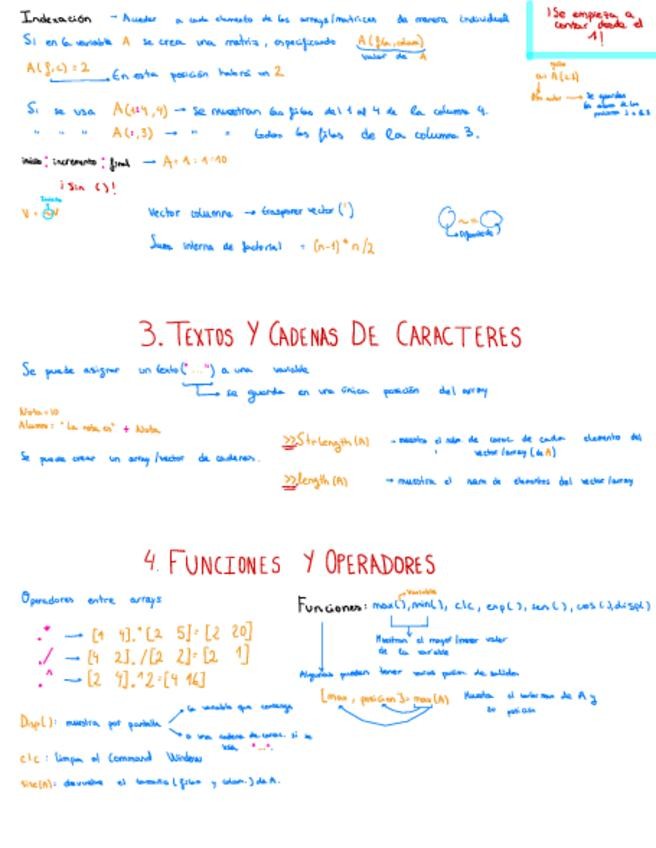 Indexación → Acceder a cada elemento de los arrays/matrices de manera individual
¡Se empieza a contar desde el 1!
Si en la variable A se crea una matriz, especificando A(fila, colum)
valor de A
A(f,c) = 2
En esta posición habrá un 2
Si se usa A(1:4,4) → se muestran las filas del 1 al 4 de la columna 4.
" " " A(:,3) → " " todas las filas de la columna 3.
inicio : incremento : final → A = 1 : 1 : 10
¡Sin ()!
Vector columna → trasponer vector (')
Suma interna de factorial = (n-1) * n/2
3. TEXTOS Y CADENAS DE CARACTERES
Se puede asignar un texto ("...") a una variable
se guarda en una única posición del array
Nota = 10
Alumno: "La nota es" + Nota
>>Strlength(A) → muestra el núm de carac. de cada elemento del vector/array (de A)
Se puede crear un array/vector de cadenas.
>>length(A) → muestra el num de elementos del vector/array
4. FUNCIONES Y OPERADORES
Operadores entre arrays
.* → [1 4].*[2 5]=[2 20]
./ → [4 2]./[2 2]=[2 1]
.^ → [2 4].^2=[4 16]
Disp(): muestra por pantalla
la variable que contenga
o una cadena de carac. si se usa "...".
clc: limpia el Command Window
size(A): devuelve el tamaño (filas y colum.) de A.
Variable
Funciones: max(), min(), clc, exp(), sen(), cos(), disp()
Muestran el mayor/menor valor de la variable
Algunas pueden tener varios de salida
[max, posicion] = max(A) Muestra el valor max de A y su posición